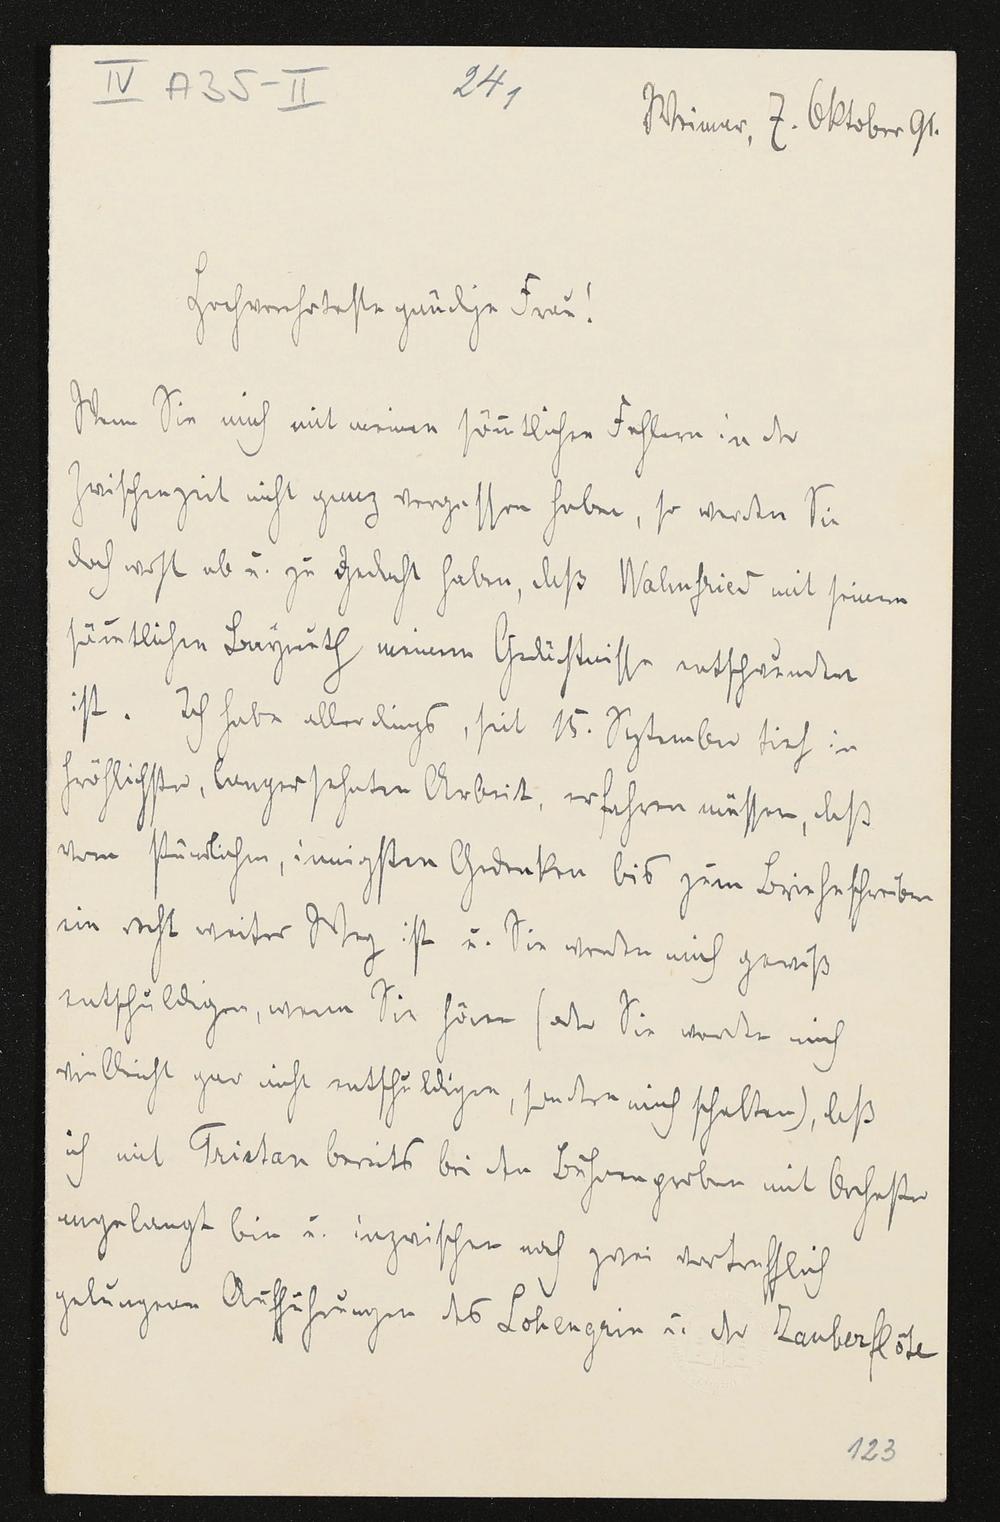 IV A35-II
24,
Weimar, 7. Oktober 91.
Hochverehrteste gnädige Frau!
Wenn Sie mich mit meinen sämtlichen Fehlern in der
Zwischenzeit nicht ganz vergessen haben, so werden Sie
doch wohl ab u. zu gedacht haben, daß Wahnfried mit seinem
sämtlichen Bayreuth meinem Gedächtnisse entschwunden
ist. Ich habe allerdings, seit 15. September tief in
fröhlichster, langersehnter Arbeit, erfahren müssen, daß
vom stündlichen, innigsten Gedenken bis zum Briefeschreiben
ein recht weiter Weg ist u. Sie werden mich gewiß
entschuldigen, wenn Sie hören (oder Sie werden mich
vielleicht gar nicht entschuldigen, sondern mich schelten), daß
ich mit Tristan bereits bei den Bühnenproben mit Orchester
angelangt bin u. inzwischen noch zwei vortrefflich
gelungene Aufführungen des Lohengrin u. der Zauberflöte
123